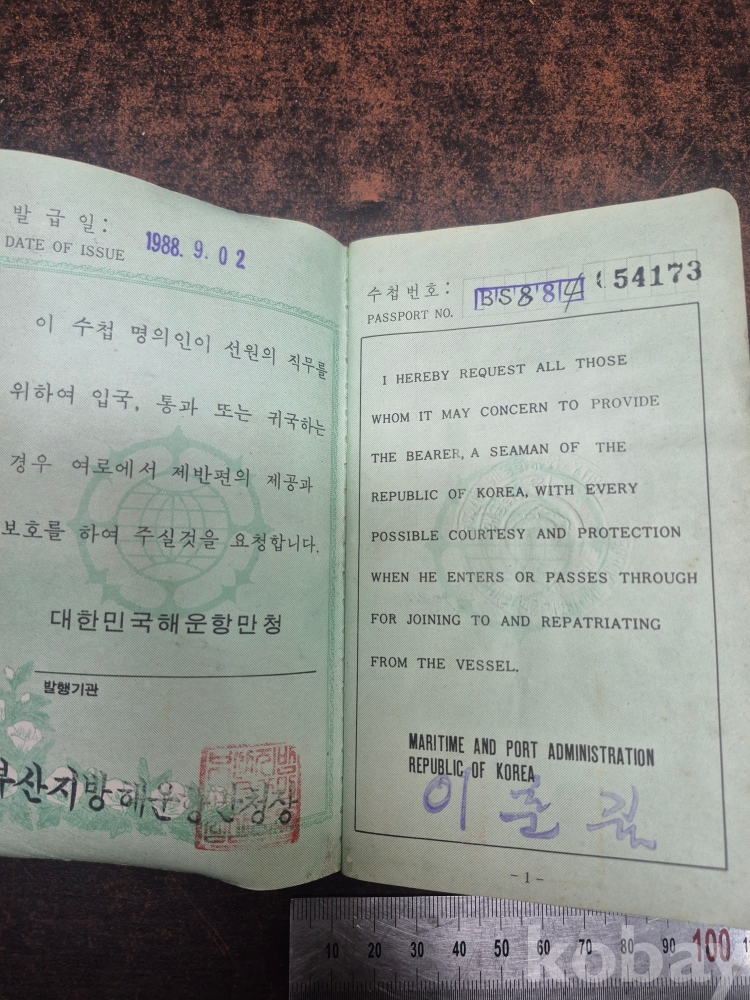 발 급 일 :
DATE OF ISSUE 1988. 9. 02
이 수첩 명의인이 선원의 직무를
위하여 입국, 통과 또는 귀국하는
경우 여로에서 제반편의 제공과
보호를 하여 주실것을 요청합니다.
대한민국해운항만청
발행기관
부산지방해운항만청장
수첩번호 :
PASSPORT NO. BS884 54173
I HEREBY REQUEST ALL THOSE
WHOM IT MAY CONCERN TO PROVIDE
THE BEARER, A SEAMAN OF THE
REPUBLIC OF KOREA, WITH EVERY
POSSIBLE COURTESY AND PROTECTION
WHEN HE ENTERS OR PASSES THROUGH
FOR JOINING TO AND REPATRIATING
FROM THE VESSEL.
MARITIME AND PORT ADMINISTRATION
REPUBLIC OF KOREA
- 1 -
10 20 30 40 50 60 70 80 90 100
kobay